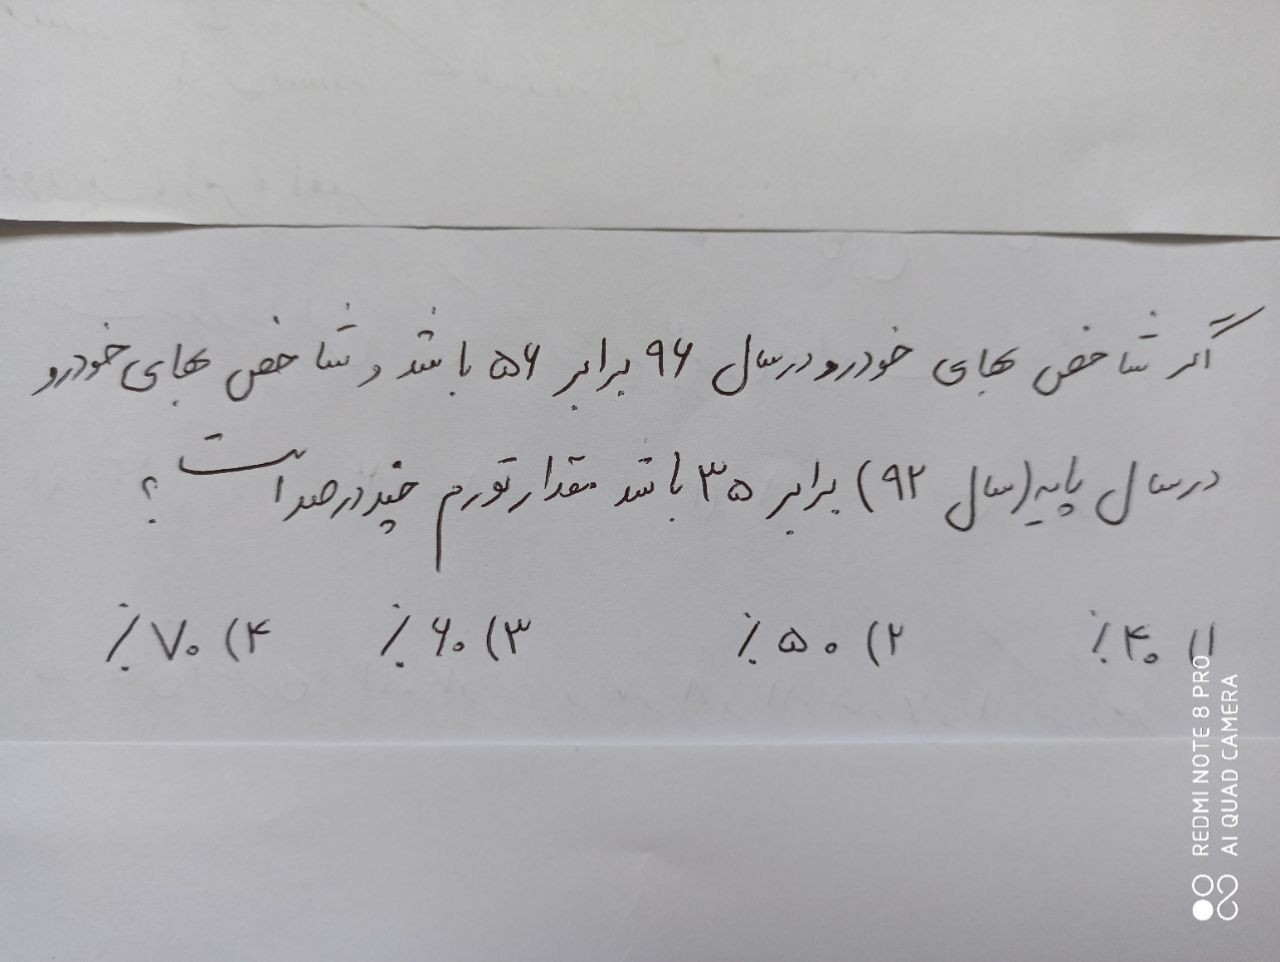 اگر شاخص بهای خودرو در سال ۹۶ برابر ۵۶ باشد و شاخص بهای خودرو
در سال پایه (سال ۹۲) برابر ۳۵ باشد مقدار تورم چند درصد است؟
۱) ۴۰٪ ۲) ۵۰٪ ۳) ۶۰٪ ۴) ۷۰٪
REDMI NOTE 8 PRO
AI QUAD CAMERA